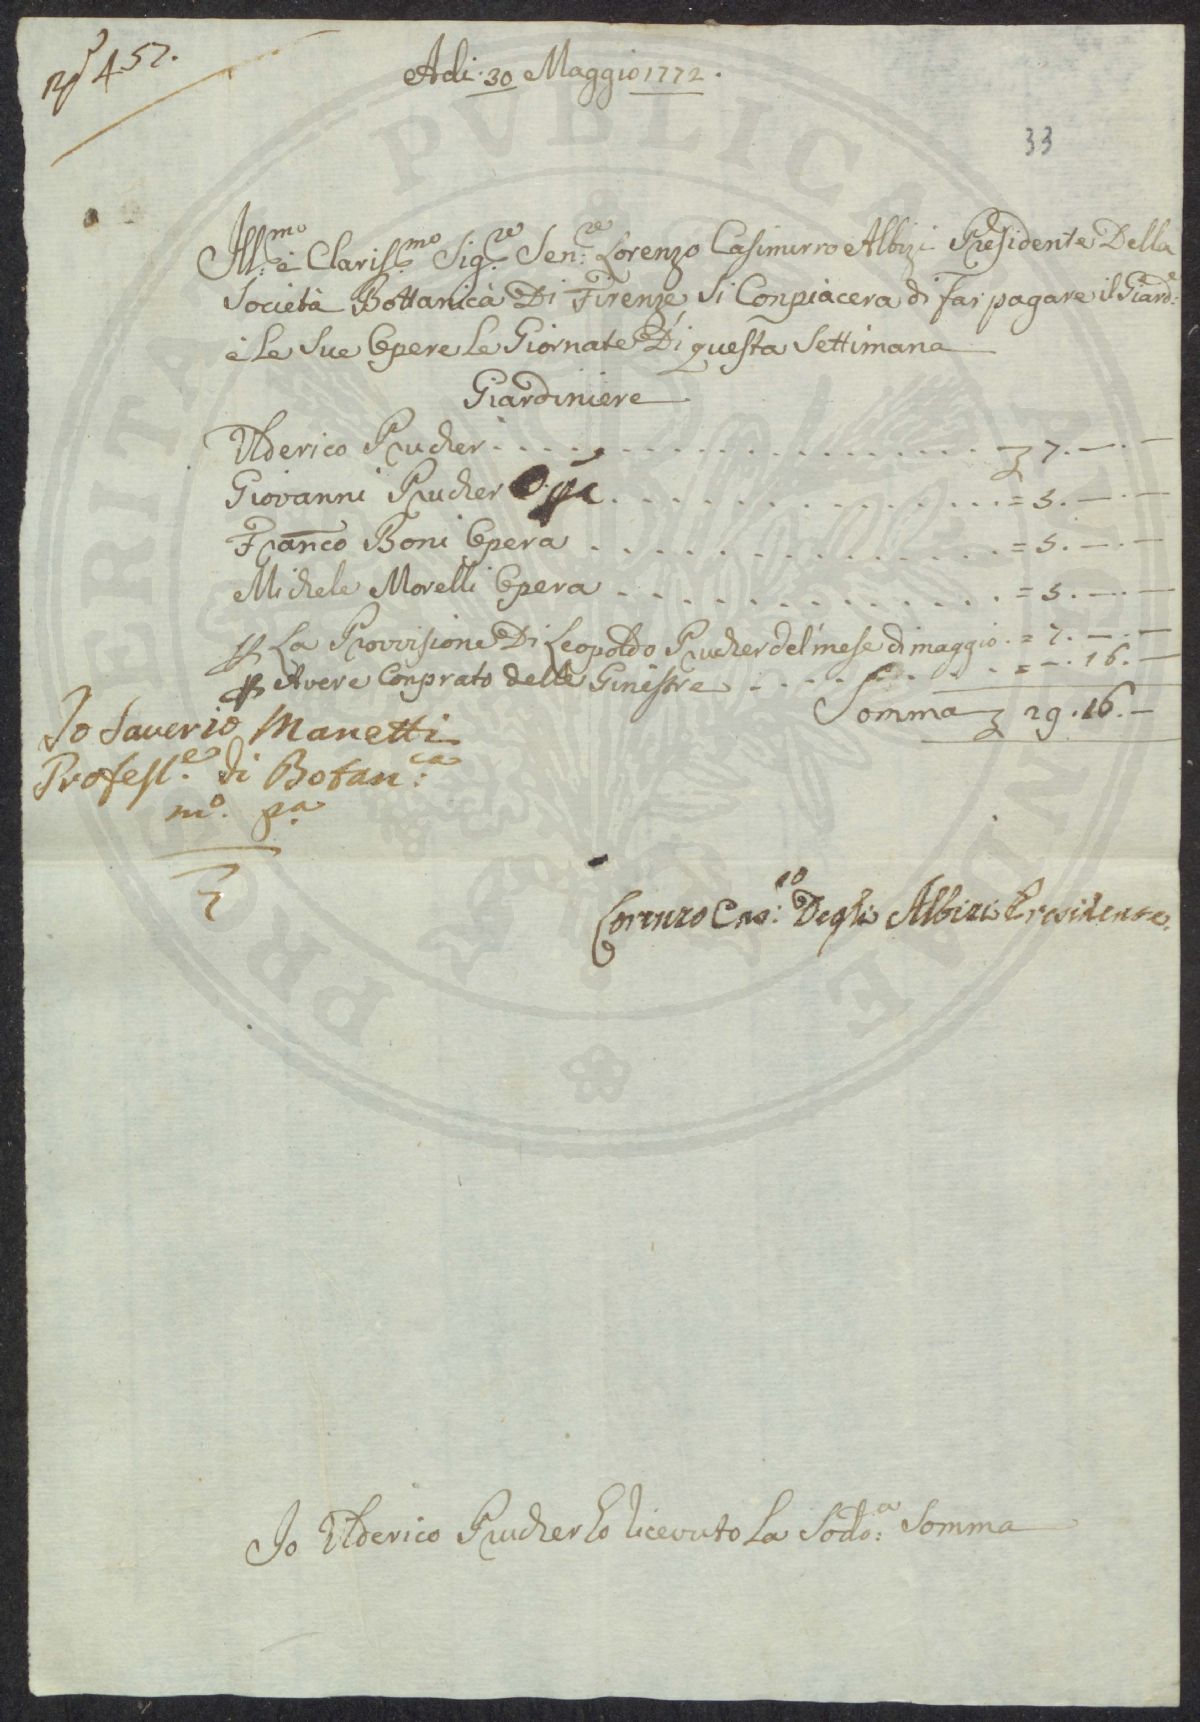 N.º 457.
Adi: 30 Maggio 1772.
33
Ill:mo è Clariss:mo Sig:re Sen:re Lorenzo Casimirro Albizi Presidente Della
Società Bottanicà Di Firenze si Conpiacera di far pagare il Giard:e
è Le Sue Opere le Giornate Di questa Settimana
Giardiniere
Ulderico Prucher . . . . . . . . . . 7. — . —
Giovanni Prucher Opã . . . . . . . . . . = 5. — . —
Franco Boni Opera . . . . . . . . . . = 5. — . —
Michele Morelli Opera . . . . . . . . . . = 5. — . —
p La Provvisione Di Leopoldo Prucher del mese di maggio . = 7. — . —
p Avere Conprato delle Ginestre . . . . . = — . 16. —
Somma 29 . 16. —
Io Saverio Manetti
Profess:e di Botan:ca
mº. pa
Lorenzo Cas:io Degli Albizi Presidente.
Io Ulderico Prucher ho ricevuto La Sodo:a Somma
PRO PERITATI PVBLICAE